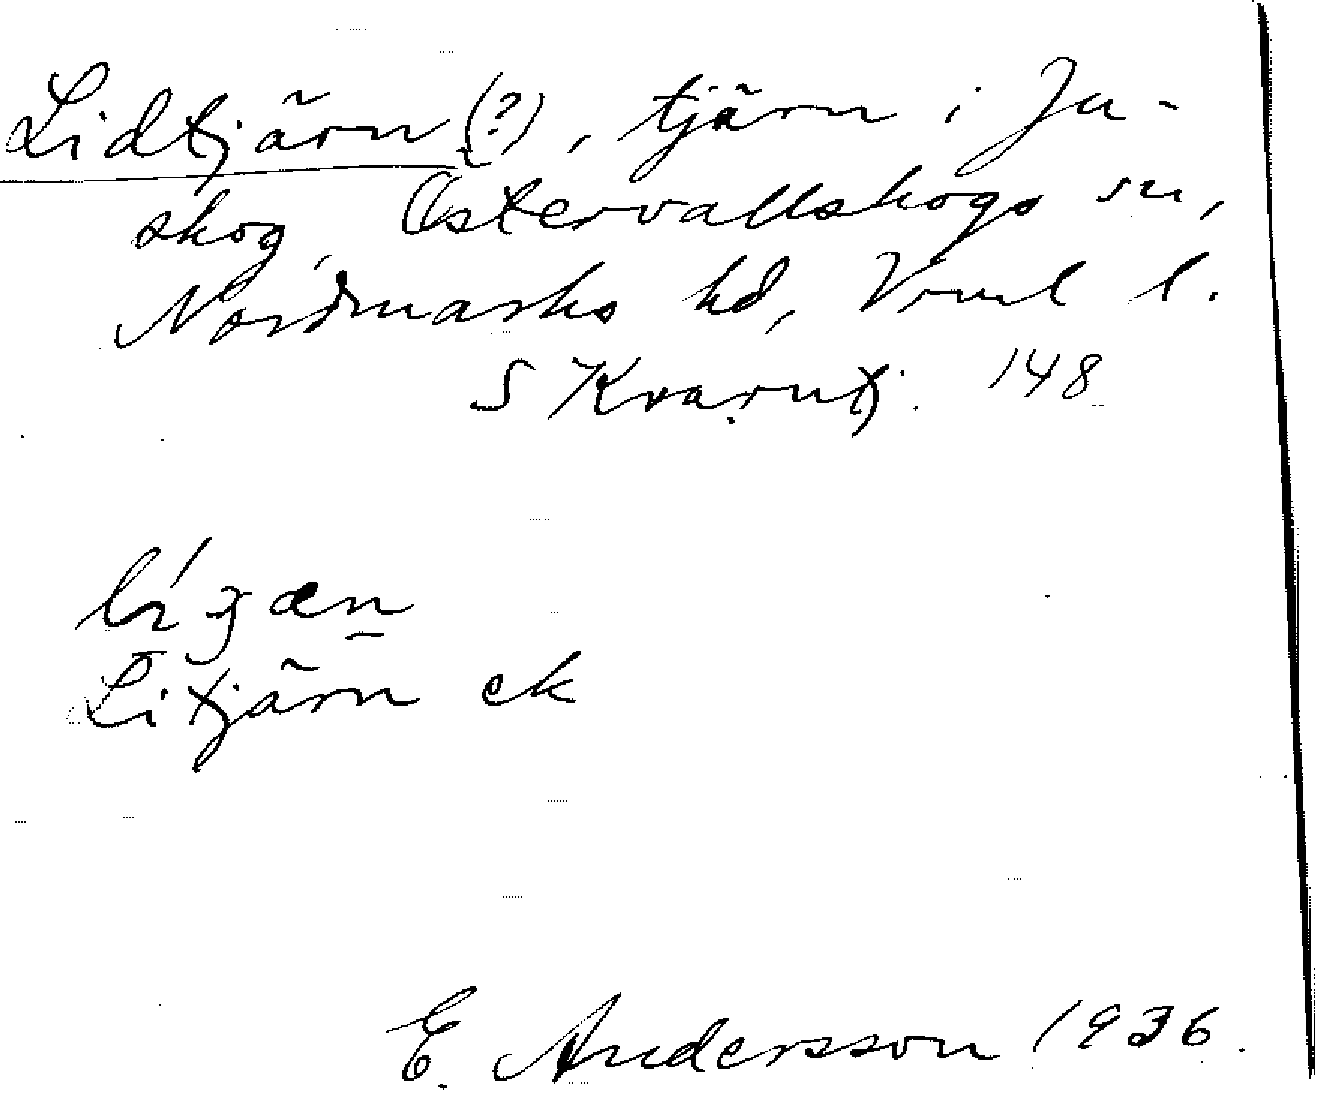 Lidtjärn (?), tjärn i Ju-
skog, Östervallskogs sn,
Nordmarks hd, Vrml l.
S Kvarntj. 148
Litjärn ek
E. Andersson 1936.